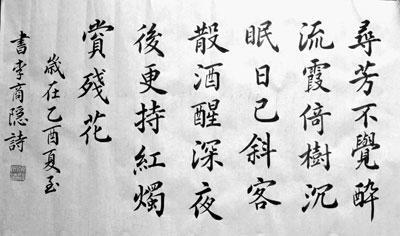 尋芳不覺醉
流霞倚樹沉
眠日已斜客
散酒醒深夜
後更持紅燭
賞殘花
歲在乙酉夏至
書李商隐詩